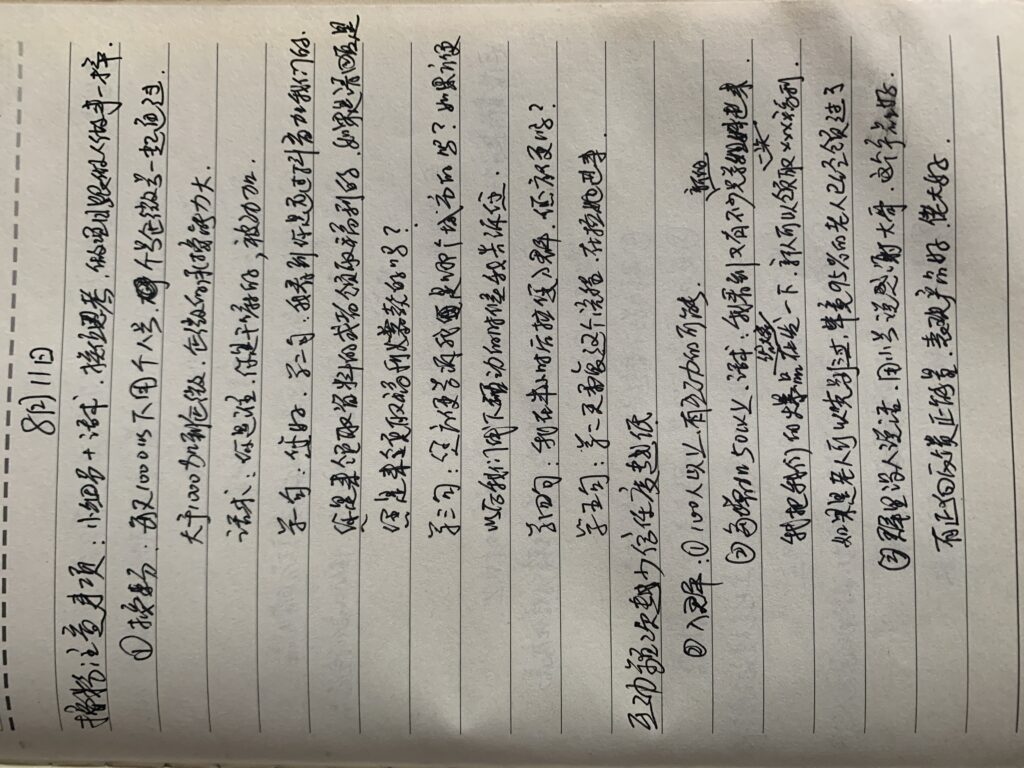 8月11日
接粉注意事项：小细节+话术，换位思考，做项目跟做人做事一样.
①接粉：每天1000以下用个人号，个号企微号一起通过.
大于1000加到企微，企微的承接能力大.
话术：你是谁，你是干嘛的，被动加.
第一句：您好，第二句：我看到你是通过抖音加我们的.
您是来领取资料的或者领取福利的，如果是请回复是
您是来领取福利爆款的吗？
第三句：您方便告诉我是哪个城市的吗？如果方便
以后我们线下活动的时候我告诉您.
第四句：我在半小时后拉您入群，您方便吗？
第五句：第二天重复这个流程，在拉她进来
互动次越少信任度越纸
②入群：①100人以上，有互动的可能.
②每增加50以上，话术：我看到又有不少新的兄弟姐妹进来，
我把我们的爆品给大家在发一下，新人可以领取一些xxx福利.
如果是老人可以先别过，毕竟95%的老人已经领过了
③群里没人说话，用小号说感谢大哥，这个产品好.
有正向反馈正能量，表现产品好，佬大好.